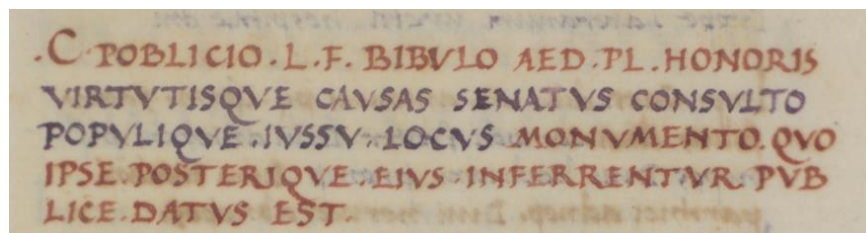 .C. POBLICIO. L. F. BIBVLO AED. PL. HONORIS
VIRTVTISQVE CAVSAS SENATVS CONSVLTO
POPVLIQVE. IVSSV. LOCVS MONVMENTO. QVO
IPSE. POSTERIQVE. EIVS. INFERRENTVR. PVB
LICE. DATVS EST.